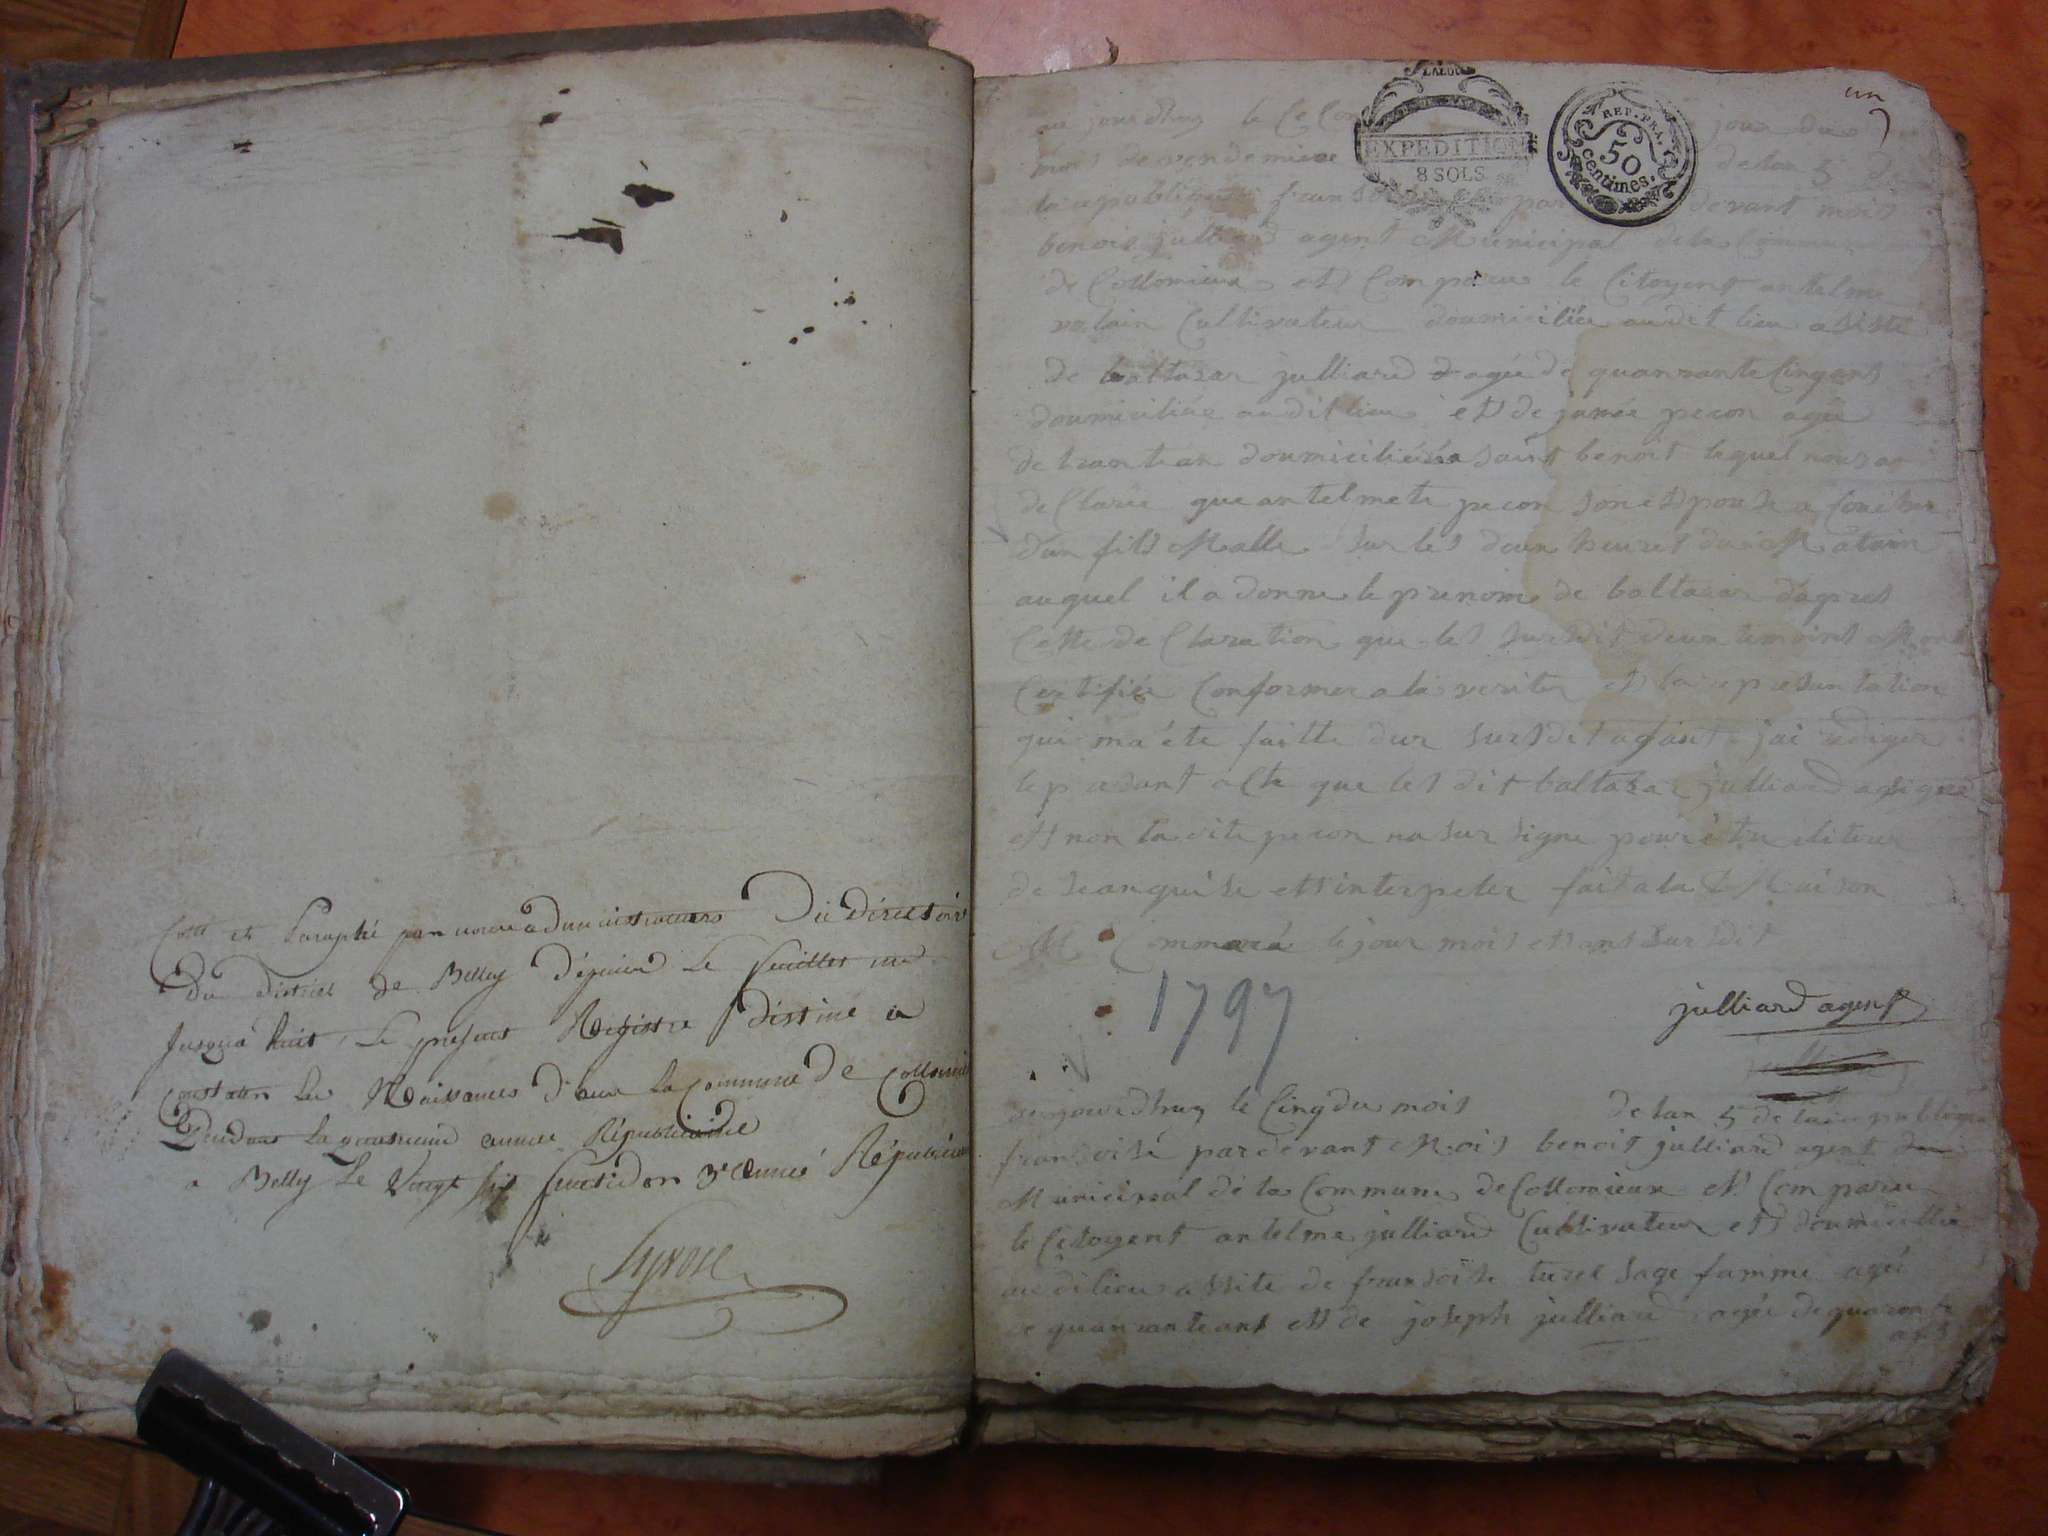 Cotté et Paraphé par nous administrateurs Du directoire
Du district de Belley Dépuis Le feuillet un
Jusqua huit, Le présent Registre destiné a
constater Les Naissances dans La Commune de Collomieu
Pendant La quatrieme année Républicaine
a Belley Le Vingt six fructidor 3e année Républicaine
un
EXPEDITION
8 SOLS
REP. FRA.
50
centimes.
au jourdhuy le jour du
mois de vendemiere de lan 5 de
la republique fransoise par devant mois
benois julliard agent Municipal de la Commune
de Collomieux est Comparu le Citoyent antelme
cultivateur doumiciliée audit lieu asisté
de baltazar julliard agée de quanrante cinq ans
doumiciliée audit lieu et de janée pecon agée
de trante an doumiciliée a saint benoit lequel nous a
de Clarée que antelmete pecon son espouse a Couchée
dun fils Malle sur les deux heures du Matain
auquel il a donne le prenom de baltazar dapres
Cette de Claration que les susdit deux temoins Mont
Certifiée Conformer a la verite et la represantation
qui ma été faitte dur susdet anfant jai rediger
le presant acte que les dit baltazar julliard a signé
et non la dite pecon na sur signe pour être
de se anquise et interpeler fait a la Maison
Commune le jour mois et ans susdit
1797
julliard agent
aujourdhuy le Cinq du mois de lan 5 de la republique
fransoise par devant Mois benoit julliard agent
Municipal de la Commune de Collomieux est Comparu
le Citoyent antelme julliard Cultivateur et doumicillié
audilieu assité de fransoise sage famme agée
de quanrante ans et de joseph julliard agée de quaronte
ans